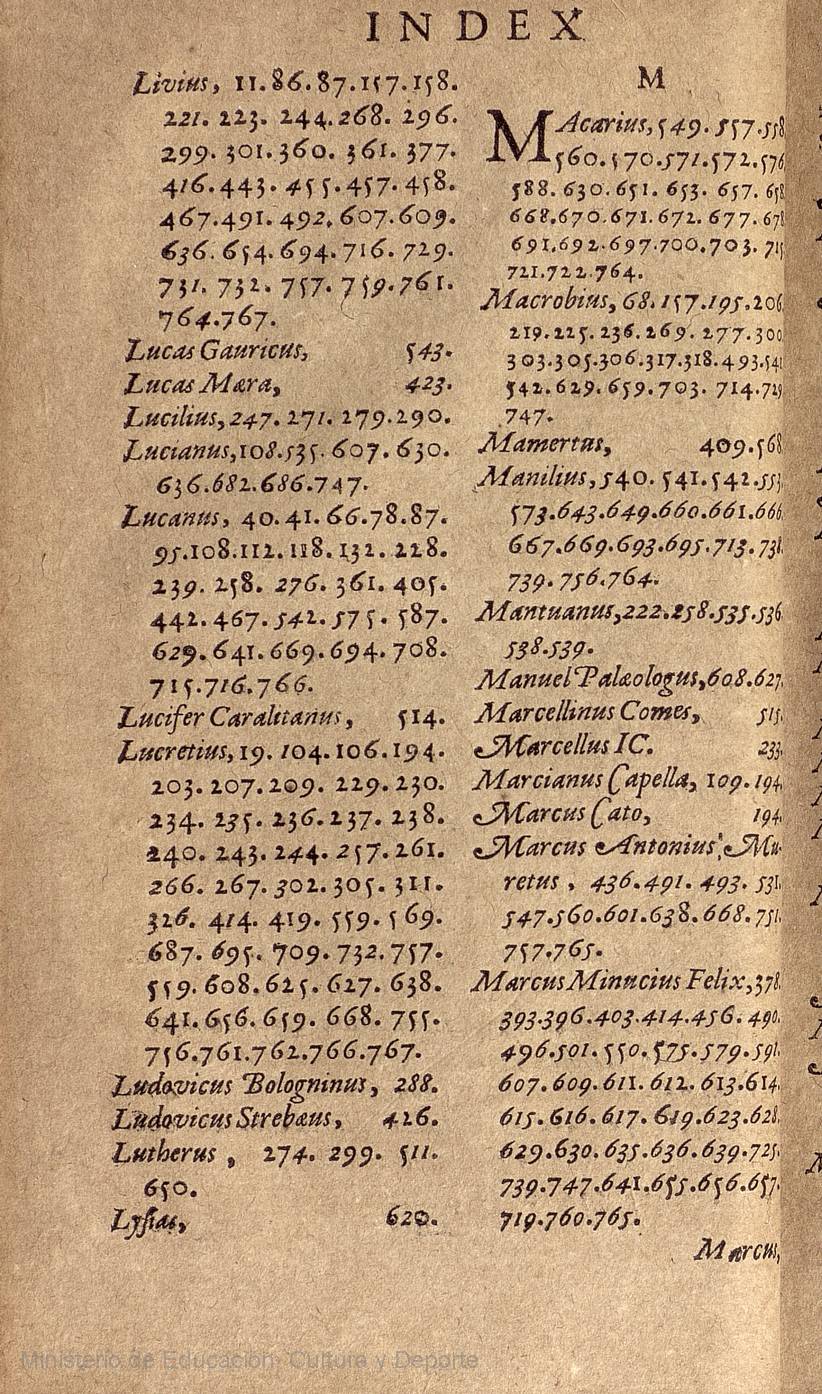 INDEX
Livius, 11.86.87.157.158.
221. 223. 244.268. 296.
299. 301.360. 361. 377.
416.443. 455.457. 458.
467.491. 492.607.609.
636. 654.694.716. 729.
731. 732. 757. 759.761.
764.767.
Lucas Gauricus, 543.
Lucas Mæra, 423.
Lucilius,247. 271. 279.290.
Lucianus,108.535. 607. 630.
636.682.686.747.
Lucanus, 40.41.66.78.87.
95.108.112.118.132.228.
239. 258. 276. 361. 405.
442. 467. 542. 575. 587.
629.641.669.694.708.
715.716.766.
Lucifer Caralitanus, 514.
Lucretius,19. 104.106.194.
203.207.209. 229.230.
234. 235. 236.237. 238.
240. 243. 244. 257.261.
266. 267. 302. 305. 311.
326. 414. 419. 559. 569.
687. 695. 709. 732. 757.
559. 608. 625. 627. 638.
641.656. 659. 668. 755.
756.761.762.766.767.
Ludovicus Bologninus, 288.
Ludovicus Strebæus, 426.
Lutherus , 274. 299. 511.
650.
Lysias, 620.
M
MAcarius,549. 557.558
560.570.571.572.576
588. 630.651. 653. 657. 658
668.670.671.672. 677.678
691.692.697.700.703. 715
721.722.764.
Macrobius, 68.157.195.206.
219.225.236.269. 277.300
303.305.306.317.318.493.541
542.629.659.703. 714.729
747.
Mamertus, 409.568
Manilius,540. 541.542.553
573.643.649.660.661.666
667.669.693.695.713.738
739.756.764.
Mantuanus,222.258.535.536
538.539.
Manuel Palæologus,608.627.
Marcellinus Comes, 515
Marcellus IC. 233.
Marcianus Capella, 109.194
Marcus Cato, 194.
Marcus Antonius Mu-
retus , 436.491. 493. 531.
547.560.601.638.668.751.
757.765.
Marcus Minucius Felix,378.
393.396.403.414.456.490.
496.501.550.575.579.591.
607.609.611.612.613.614.
615.616.617.619.623.628.
629.630.635.636.639.725.
739.747.641.655.656.657.
719.760.765.
Marcus,
Ministerio de Educación, Cultura y Deporte